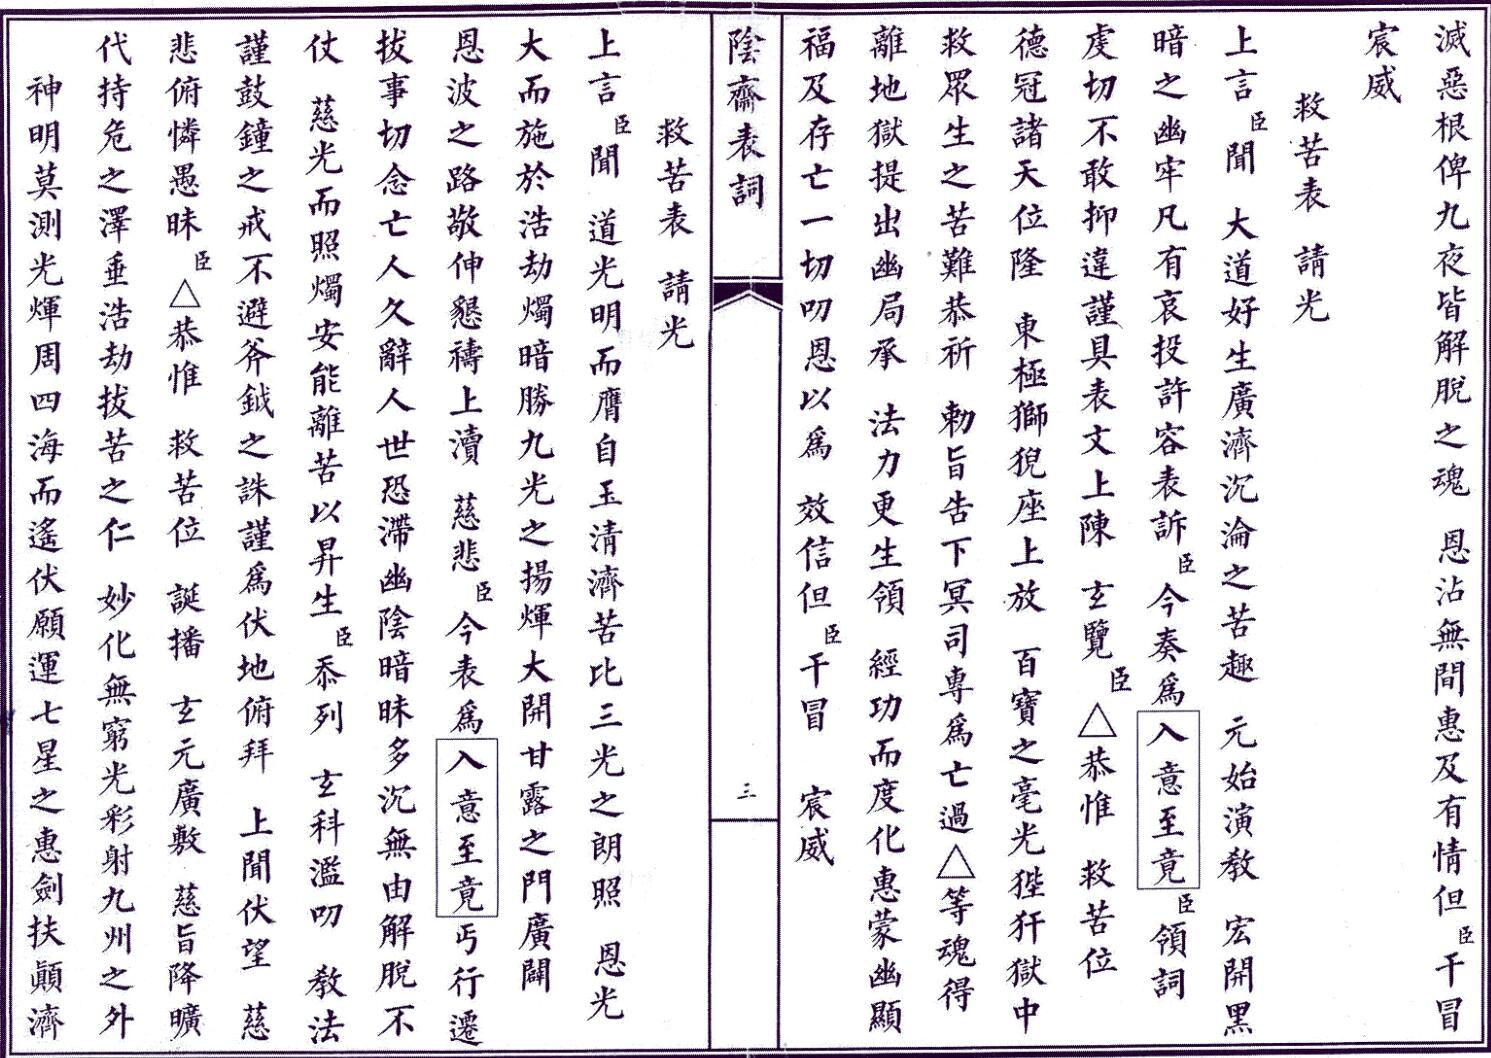 滅惡根俾九夜皆解脫之魂　恩沾無間惠及有情但臣干冒
宸威
救苦表　請光
上言臣聞　大道好生廣濟沉淪之苦趣　元始演教　宏開黑
暗之幽牢凡有哀投許容表訴臣今奏爲入意至竟臣領詞
虔切不敢抑違謹具表文上陳　玄覽臣△恭惟　救苦位
德冠諸天位隆　東極獅猊座上放　百寶之毫光狴犴獄中
救眾生之苦難恭祈　勅旨告下冥司專爲亡過△等魂得
離地獄提出幽局承　法力更生領　經功而度化惠蒙幽顯
福及存亡一切叨恩以爲　效信但臣干冒　宸威
陰齋表詞
三
救苦表　請光
上言臣聞　道光明而膺自玉清濟苦比三光之朗照　恩光
大而施於浩劫燭暗勝九光之揚輝大開甘露之門廣闢
恩波之路敬伸懇禱上瀆　慈悲臣今表爲入意至竟丐行遷
拔事切念亡人久辭人世恐滯幽陰暗昧多沉無由解脫不
仗　慈光而照燭安能離苦以昇生臣忝列　玄科濫叨　教法
謹鼓鐘之戒不避斧鉞之誅謹爲伏地俯拜　上聞伏望　慈
悲俯憐愚昧臣△恭惟　救苦位　誕播　玄元廣敷　慈旨降曠
代持危之澤垂浩劫拔苦之仁　妙化無窮光彩射九州之外
神明莫測光輝周四海而遙伏願運七星之惠劍扶顚濟